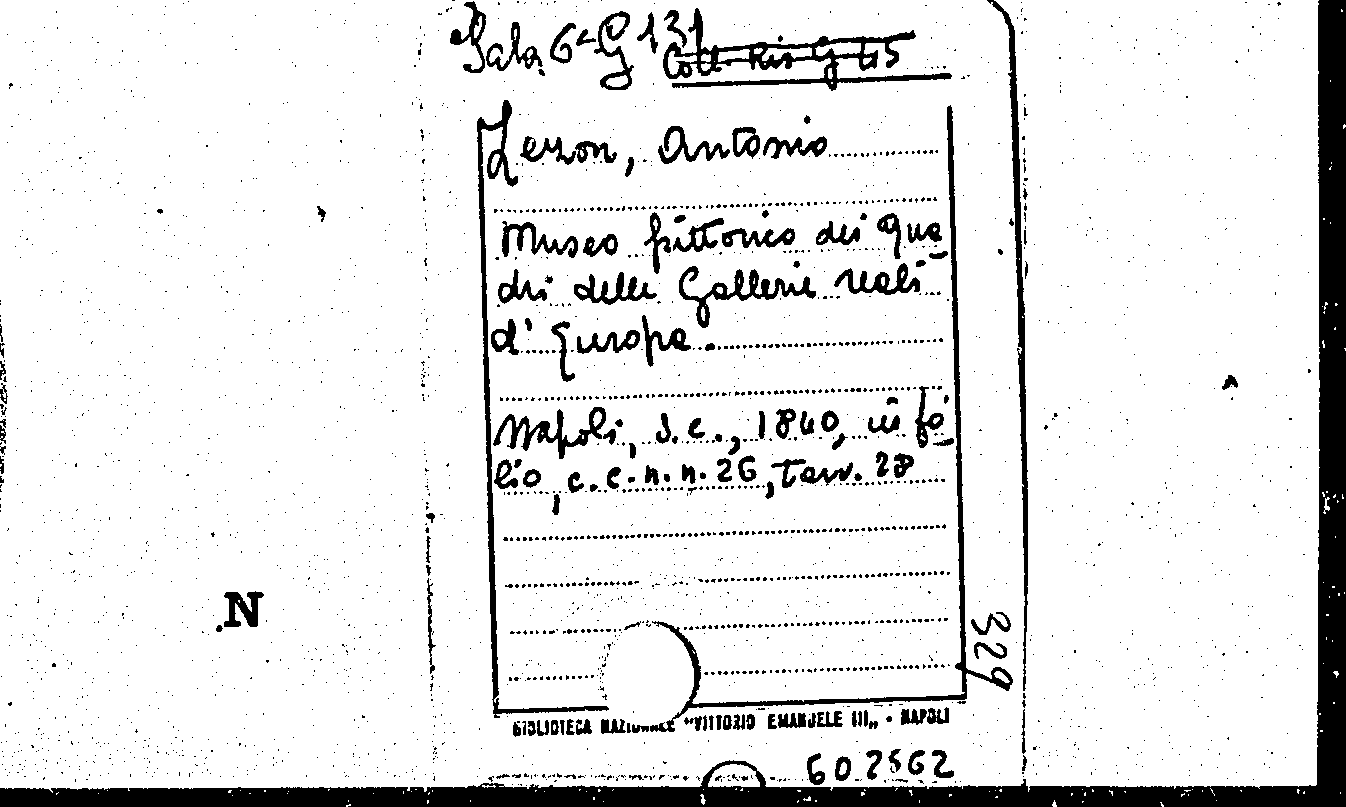 Sala 6ª G 131
Coll. Ris G 45
Zezon, Antonio
Museo pittorico dei qua
dri delle Gallerie reali
d'Europa.
Napoli, s.e., 1840, in fo
lio, c.c.n.n. 26, tavv. 28
329
N
BIBLIOTECA NAZIONALE "VITTORIO EMANUELE III„ - NAPOLI
602562